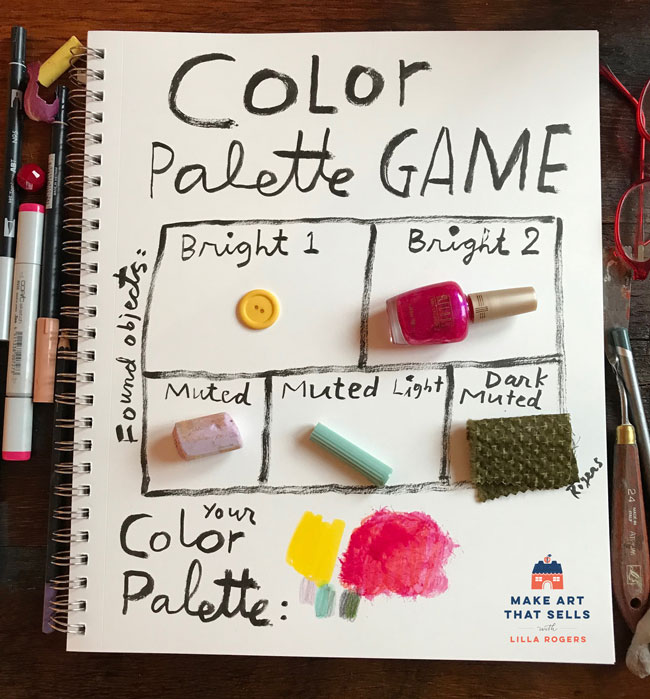 Color
Palette GAME
Found objects:
Bright 1
Bright 2
Muted
Muted Light
Dark
Muted
Rogers
Your
Color
Palette:
MAKE ART
THAT SELLS
with
LILLA ROGERS
24